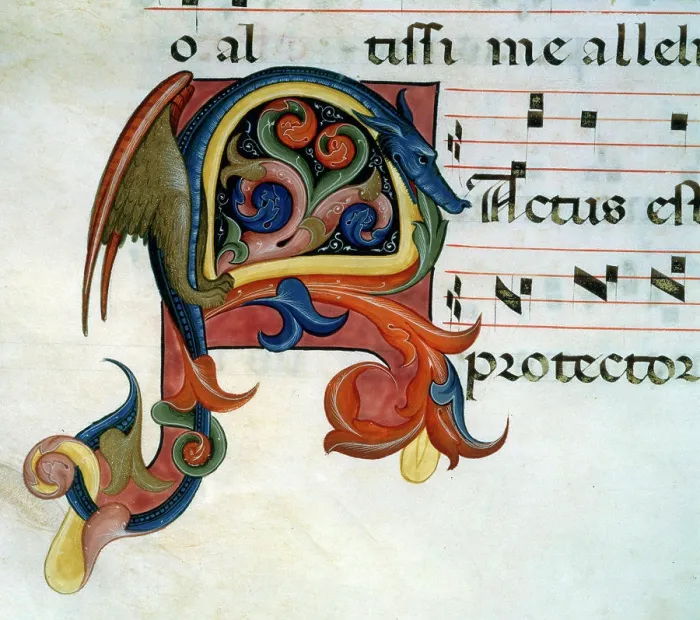 o al tissi me allelu
FActus est
protector